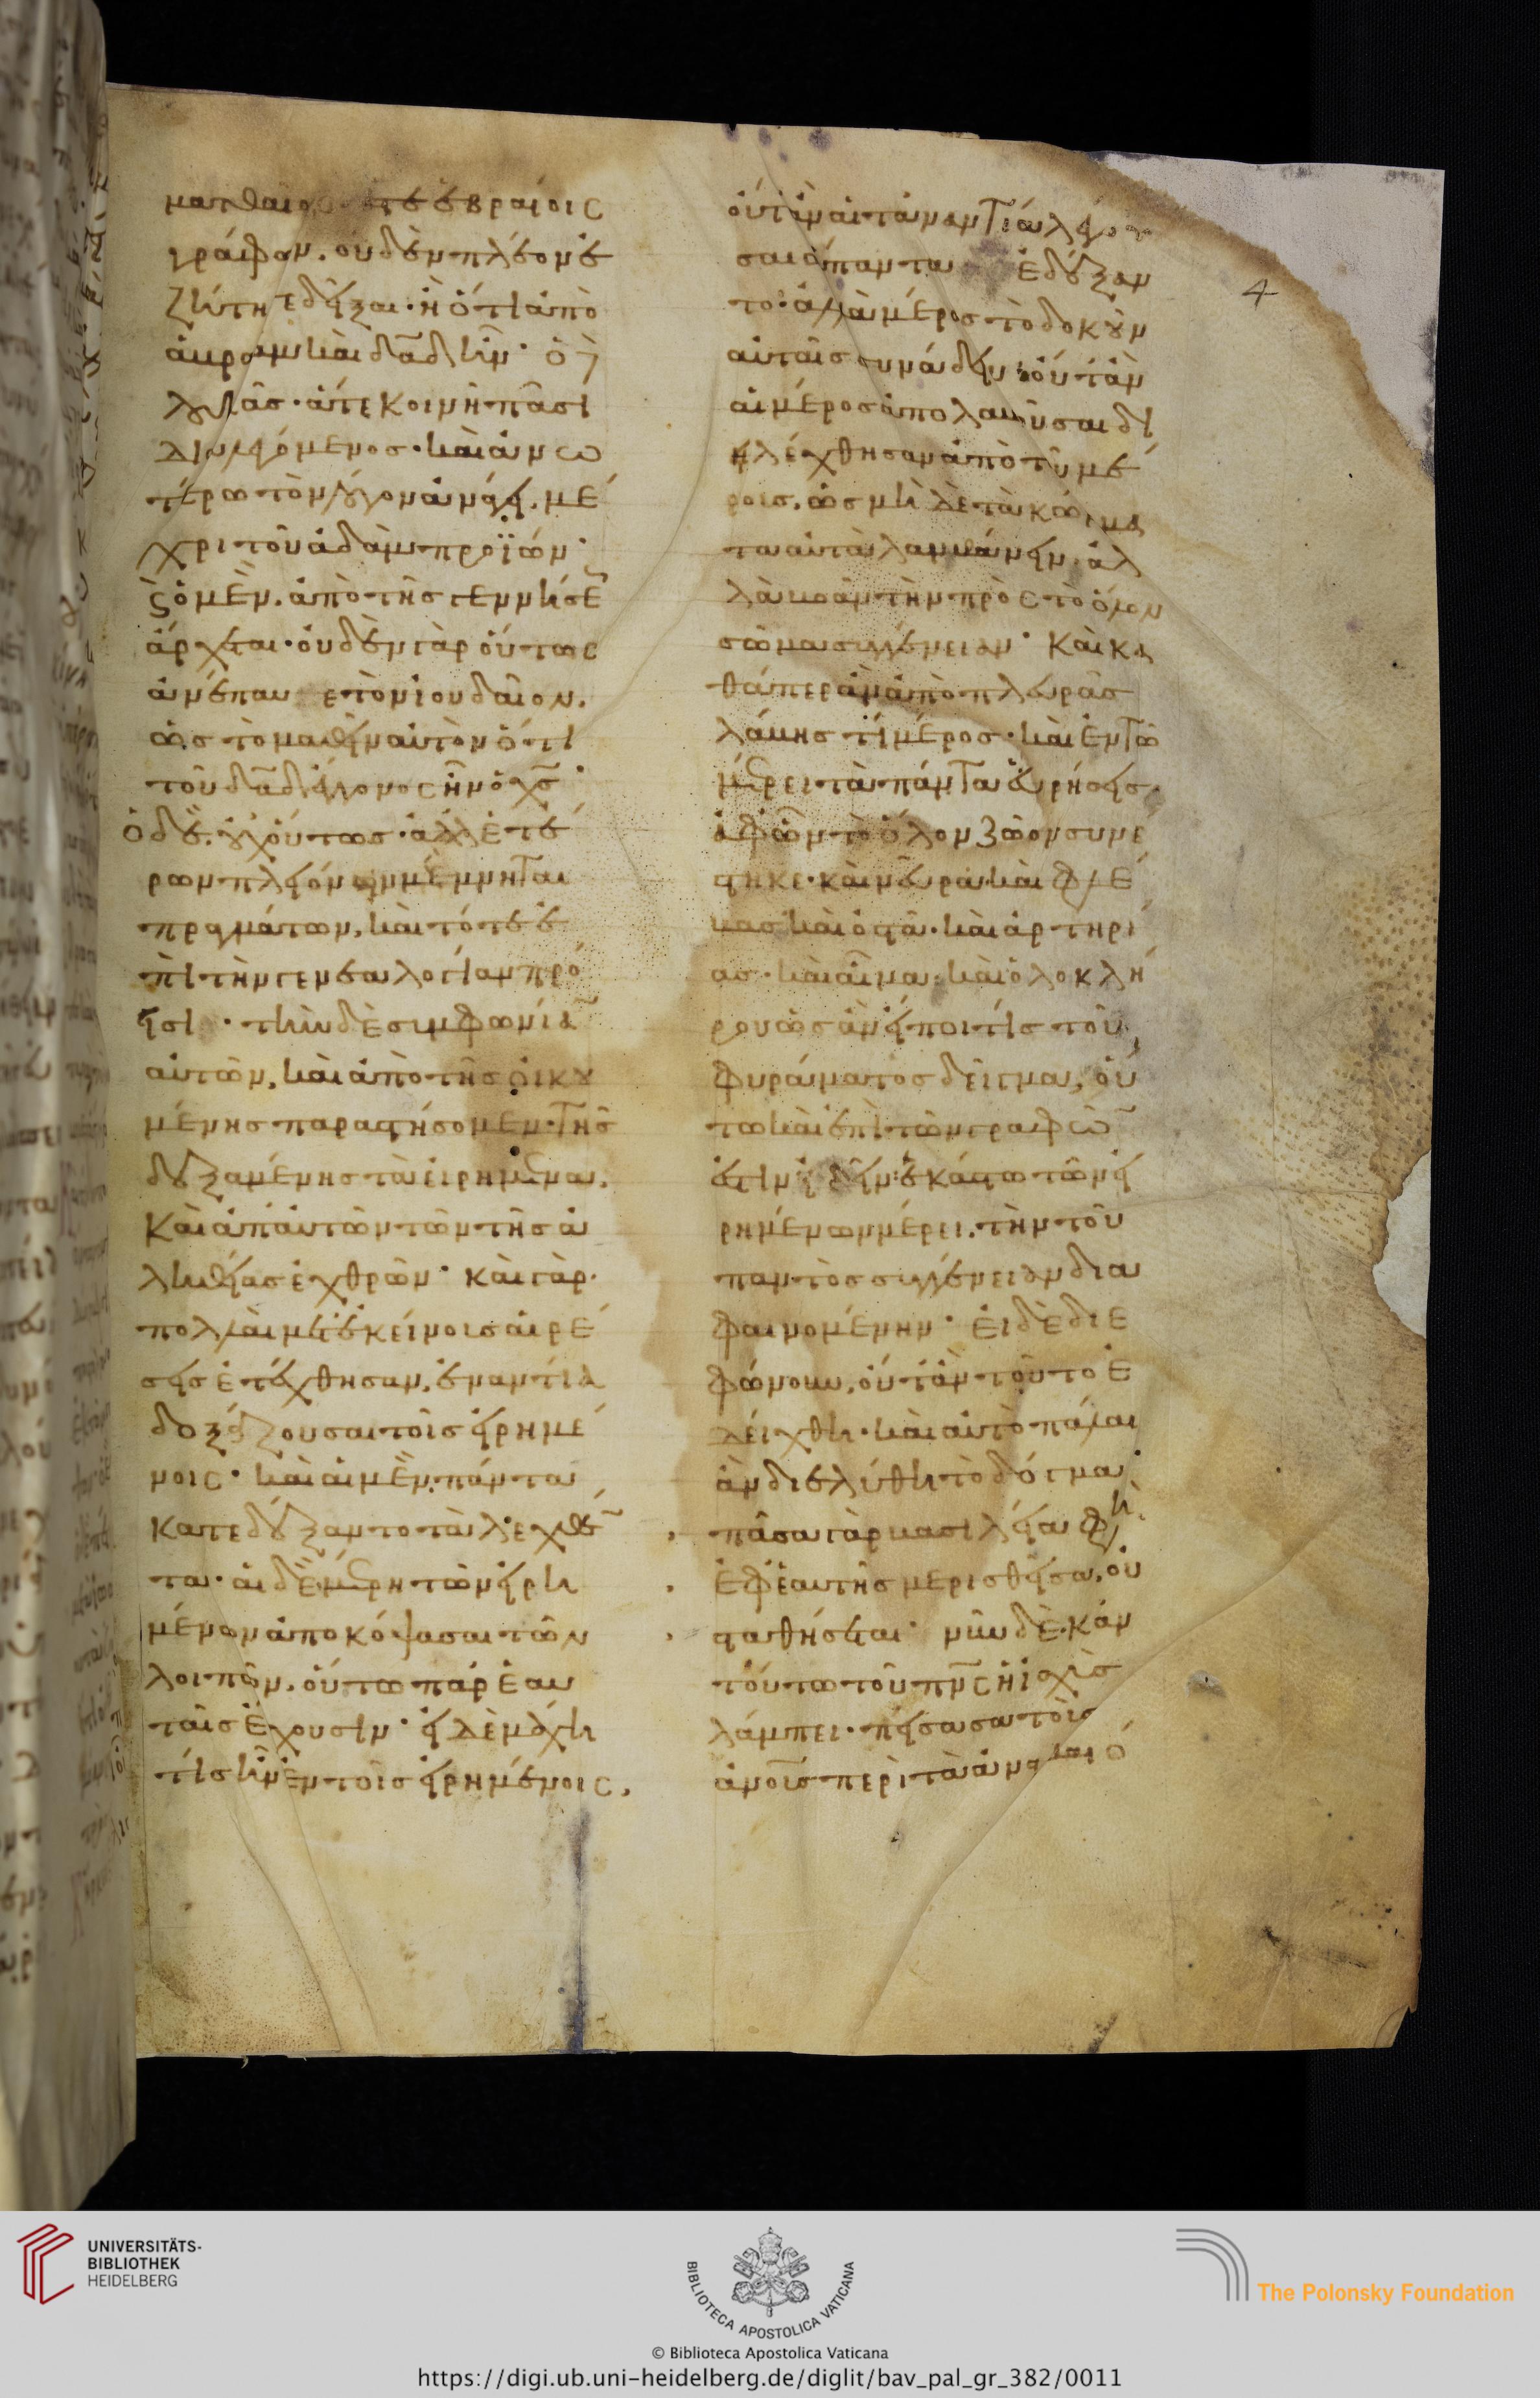 ματθαῖος ἅτε ἑβραίοις
γράφων. οὐδὲν πλέον ἐ
ζήτησε δεῖξαι· ἢ ὅτι ἀπὸ
ἀβραὰμ καὶ δᾱδ ἦν· ὁ δὲ
λουκᾶς. ἅτε κοινῆ πᾶσι
διαλεγόμενος. καὶ ἀνω
τέρω τὸν λόγον ἀνάγει. μέ
χρι τοῦ ἀδὰμ προϊών·
ϛ ὁ μὲν. ἀπὸ τῆς γεννήσε
ἄρχεται· οὐδὲν γὰρ οὕτως
ἀνέπαυε τὸν ἰουδαῖον.
ὡς τὸ μαθεῖν αὐτὸν ὅτι
τοῦ δᾱδ ἔγγονος ἦν ὁ χς·
ὁ δὲ. οὐχ οὕτως. ἀλλ' ἑτέ
ρων πλειόνων μέμνηται
πραγμάτων, καὶ τότε ἐ
πὶ τὴν γενεαλογίαν πρό
εισι. τὴν δὲ συμφωνία
αὐτῶν, καὶ ἀπὸ τῆς οἰκου
μένης παραστήσομεν· τῆς
δεξαμένης τὰ εἰρημένα,
καὶ ἀπ' αὐτῶν τῶν τῆς ἀ
ληθείας ἐχθρῶν· καὶ γὰρ
πολλαὶ μετ' ἐκείνοις αἱρέ
σεις ἐτέχθησαν, ἐναντία
δοξάζουσαι τοῖς εἰρημέ
νοις· καὶ αἱ μὲν πάντα
κατεδέξαντο τὰ λεχθέ
τα· αἱ δὲ μέρη τῶν εἰρη
μένων ἀποκόψασαι τῶν
λοιπῶν. οὕτω παρ' ἑαυ
ταῖς ἔχουσιν· εἰ δὲ μάχη
τίς ἦν ἐν τοῖς εἰρημένοις,
οὔτ' ἂν αἱ τἀναντία λέγου
σαι ἅπαντα ἐδέξαν
το· ἀλλὰ μέρος τὸ δοκοῦν
αὐταῖς συνάδειν· οὔτ' ἂν
αἱ μέρος ἀπολαβοῦσαι δι
ηλέγχθησαν ἀπὸ τοῦ μέ
ρους, ὡς μὴ δὲ τὰ κόμμα
τα αὐτὰ λανθάνειν. ἀλ
λὰ βοᾶν τὴν πρὸς τὸ ὅλον
σῶμα συγγένειαν· καὶ κα
θάπερ ἂν ἀπὸ πλευρᾶς
λάβης τὶ μέρος· καὶ ἐν τῶ
μέρει τὰ πάντα εὑρήσεις.
ἀφ' ὧν τὸ ὅλον ζῶον συνέ
στηκε· καὶ νεῦρα καὶ φλέ
βας καὶ ὀστᾶ· καὶ ἀρτηρί
ας· καὶ αἷμα, καὶ ὁλοκλή
ρου ὡς ἂν εἴποι τίς τοῦ
φυράματος δεῖγμα, οὕ
τω καὶ ἐπὶ τῶν γραφῶ
ἔστιν ἰδεῖν· ἑκάστω τῶν εἰ
ρημένων μέρει. τὴν τοῦ
παντὸς συγγένειαν δια
φαινομένην· εἰ δὲ διε
φώνουν, οὔτ' ἂν τοῦτο ἐ
δείχθη· καὶ αὐτὸ πάλαι
ἂν διελύθη τὸ δόγμα·
πᾶσα γὰρ βασιλεία φη
ἐφ' ἑαυτῆς μερισθεῖσα, οὐ
σταθήσεται· νῦν δὲ κἀν
τούτω τοῦ πνς ἡ ἰσχὺς
λάμπει· πείσασα τοὺς
ἀνους περὶ τὰ ἀναγκαιό
4
UNIVERSITÄTS-
BIBLIOTHEK
HEIDELBERG
BIBLIOTECA APOSTOLICA VATICANA
The Polonsky Foundation
© Biblioteca Apostolica Vaticana
https://digi.ub.uni-heidelberg.de/diglit/bav_pal_gr_382/0011